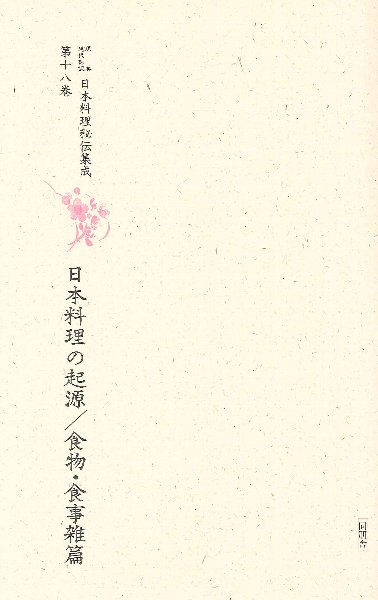 日本料理秘伝集成
第十八巻
日本料理の起源／食物・食事雑篇
同朋舎